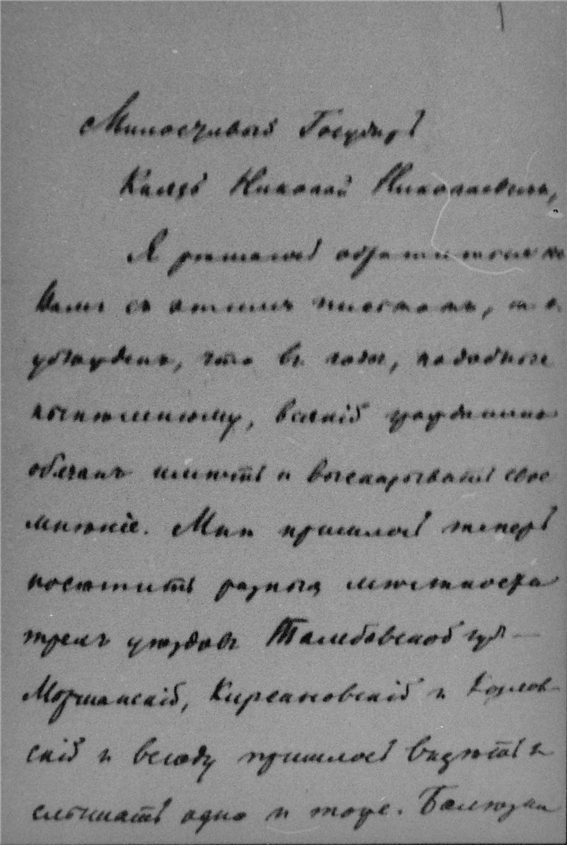 Милостивый Государь
Князь Николай Николаевичъ,
Я рѣшаюсь обратиться къ
Вамъ съ этимъ письмомъ, т. к.
убѣжденъ, что въ годы, подобные
нынѣшнему, всякій гражданинъ
обязанъ имѣть и высказывать свое
мнѣніе. Мнѣ пришлось теперь
посѣтить разныя мѣстности
трехъ уѣздовъ Тамбовской губ —
Моршанскій, Кирсановскій и Козлов-
скій и всюду пришлось видѣть и
слышать одно и тоже.